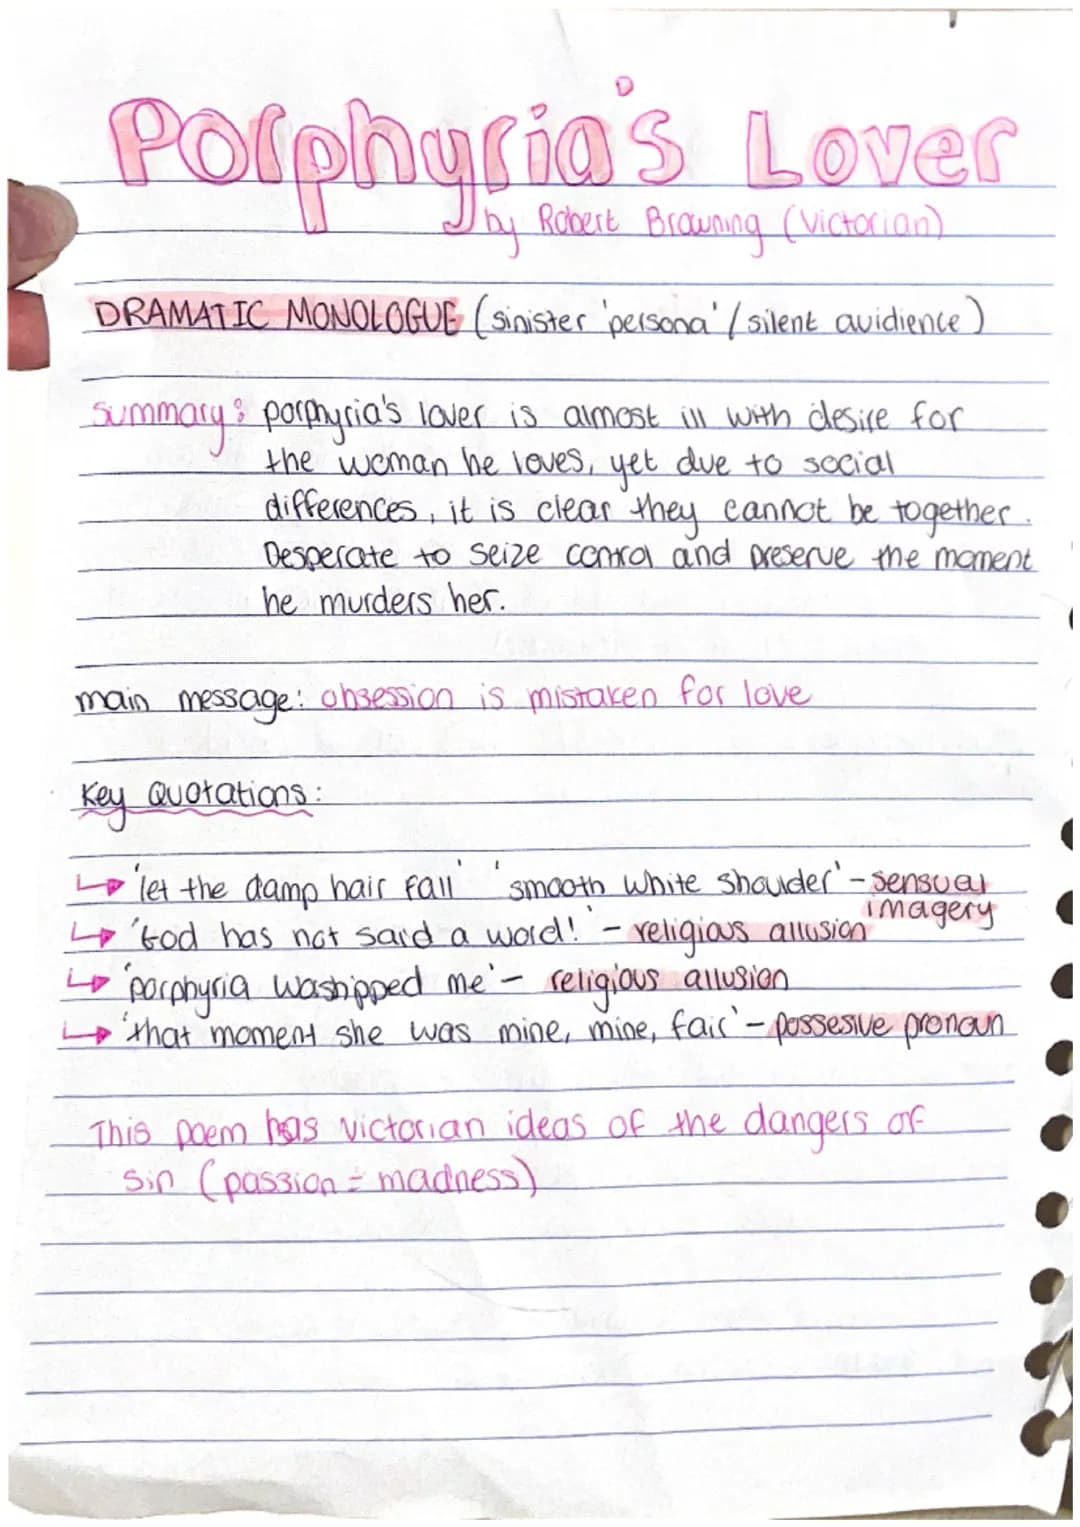 Porphyria's Lover
by Robert Browning (Victorian)
DRAMATIC MONOLOGUE (sinister 'persona' / silent avidience)
summary: porphyria's lover is almost ill with desire for
the woman he loves, yet due to social
differences, it is clear they cannot be together.
Desperate to seize control and preserve the moment
he murders her.
main message: obsession is mistaken for love
Key Quotations:
↳ 'let the damp hair fall' 'smooth white shoulder' - sensual
imagery
↳ 'God has not said a word!' - religious allusion
↳ 'porphyria worshipped me' - religious allusion
↳ 'that moment she was mine, mine, fair' - possesive pronoun
This poem has victorian ideas of the dangers of
sin (passion = madness)